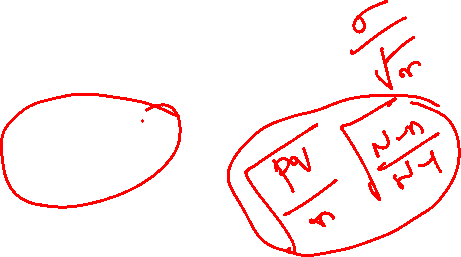 σ/√n
√(pq/n) √((N-n)/(N-1))